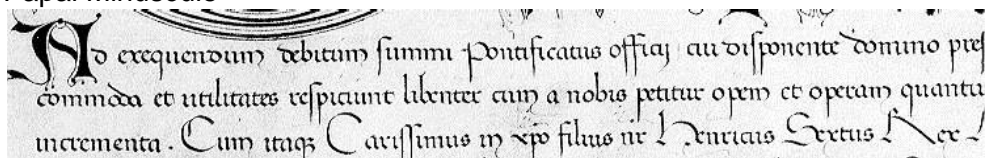 Papal minuscule
Ad exequendum debitum summi Pontificatus officij cui disponente domino pres
commoda et utilitates respiciunt libenter cum a nobis petitur opem et operam quantu
incrementa. Cum itaqꝫ Carissimus in xpo filius nr Henricus Sextus Rex